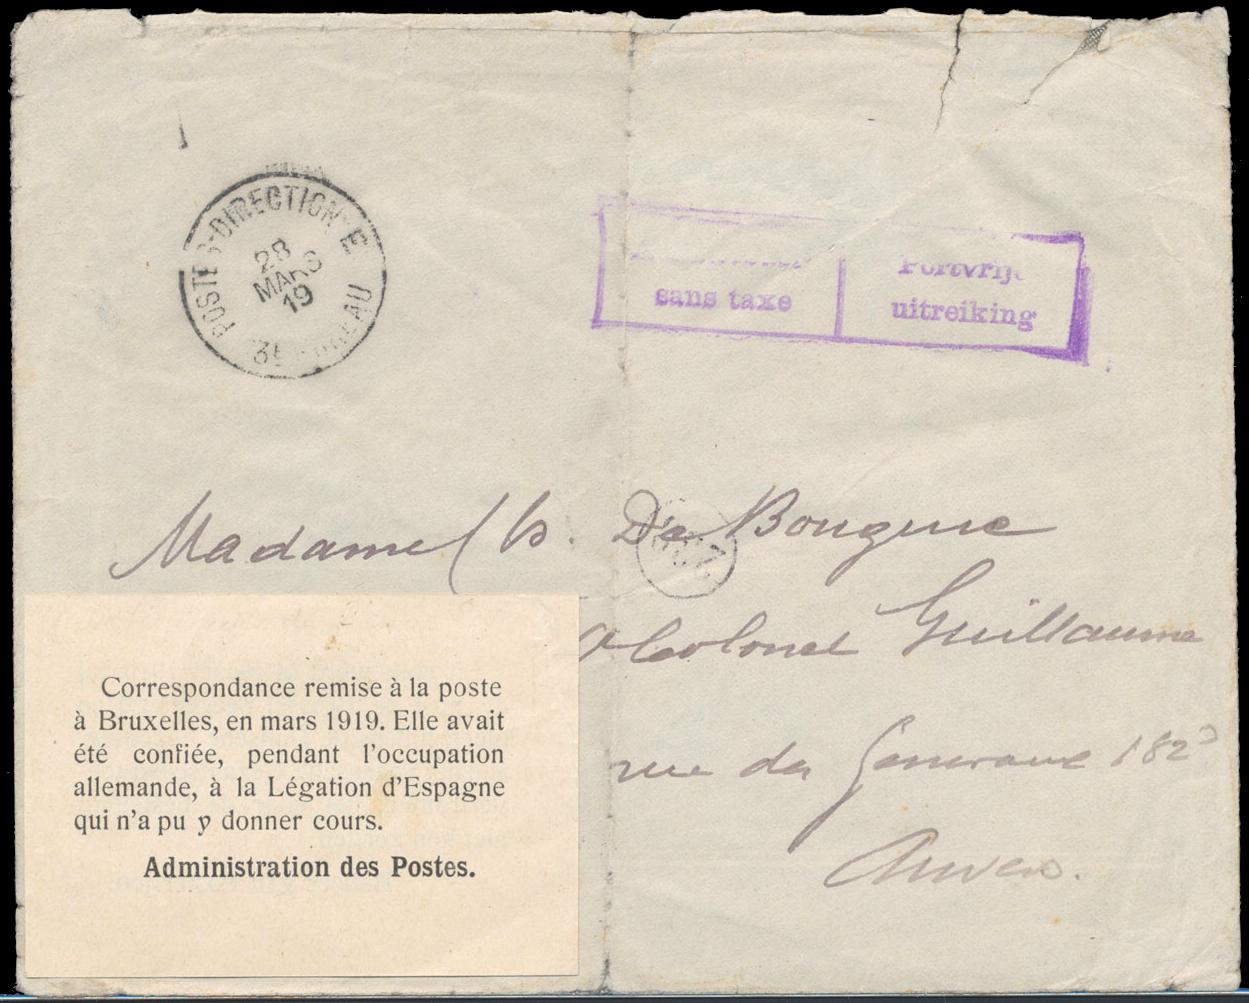 POSTES-DIRECTION E
28
MARS
19
BUREAU
sans taxe
uitreiking
Madame
Colonel Guillaume
rue des
Anvers.
Correspondance remise à la poste
à Bruxelles, en mars 1919. Elle avait
été confiée, pendant l'occupation
allemande, à la Légation d'Espagne
qui n'a pu y donner cours.
Administration des Postes.